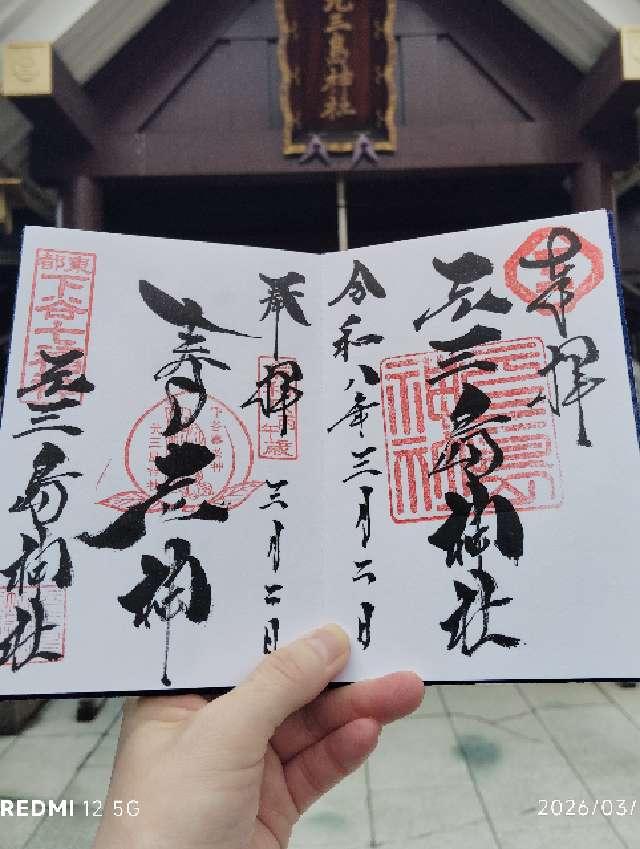 元三島神社
奉拝
元三島神社
令和八年三月二日
奉拝
三月二日
寿老神
東都
下谷七福神
元三島神社
REDMI 12 5G
2026/03/